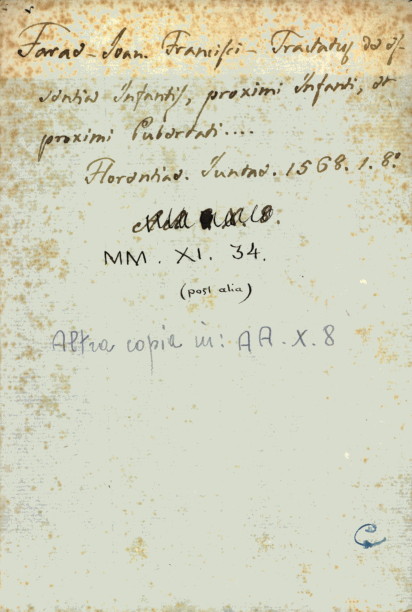 Farae - Joan. Francisci - Tractatus de es-
sentia Infantis, proximi Infanti, et
proximi Pubertati....
Florentiae. Juntae. 1568. 1. 8.º
MM. XI. 34.
(post alia)
Altra copia in: AA. X. 8
C